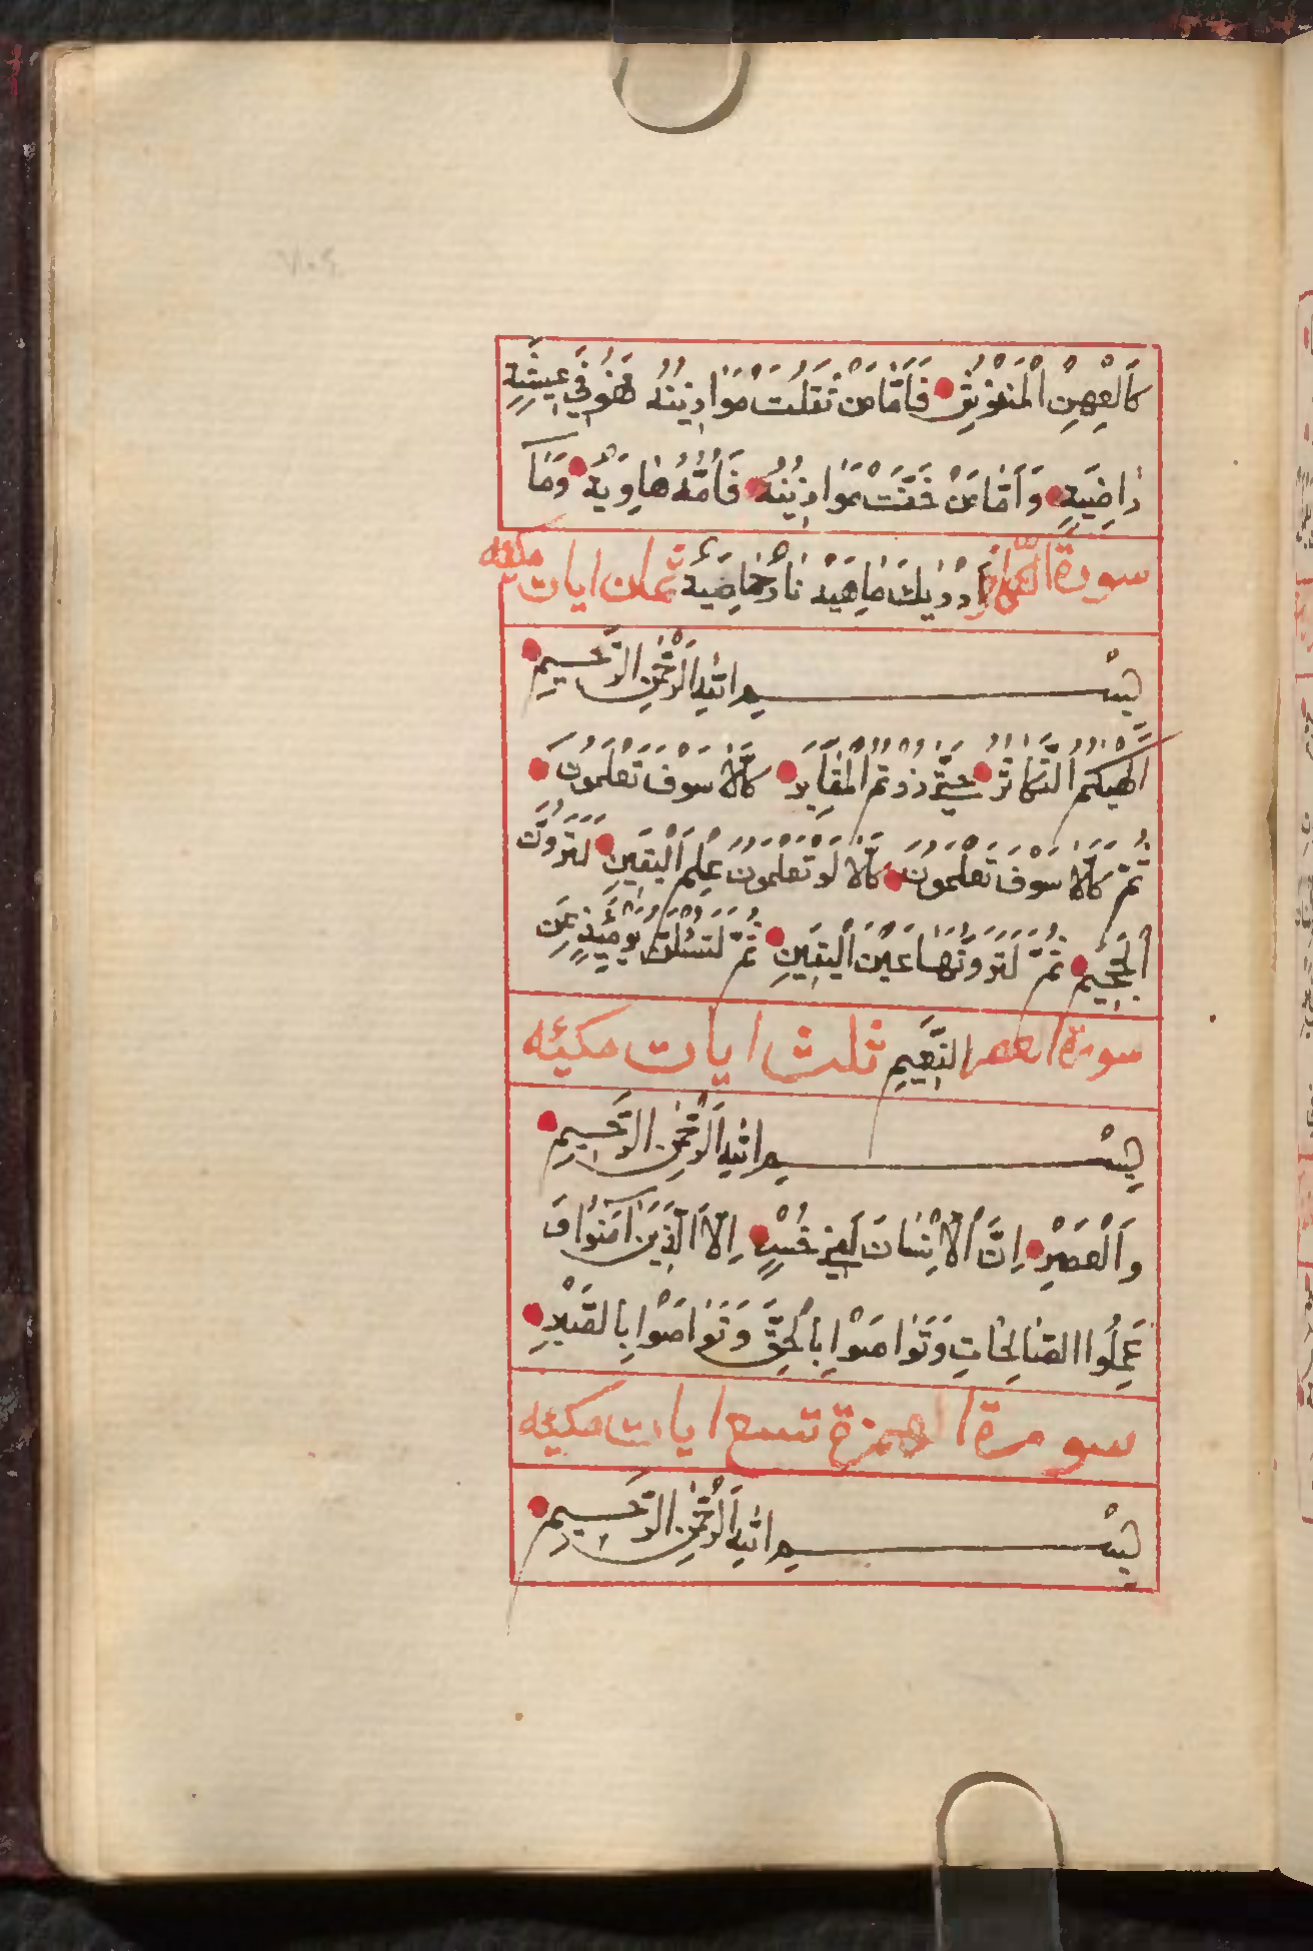 كَالْعِهْنِ الْمَنْفُوْشِ فَاَمَّا مَنْ ثَقُلَتْ مَوَازِيْنُهُ فَهُوَ فِيْ عِيْشَةٍ
رَاضِيَةٍ وَاَمَّا مَنْ خَفَّتْ مَوَازِيْنُهُ فَاُمُّهُ هَاوِيَةٌ وَمَا
سورة التكاثر اَدْرٰيكَ مَاهِيَهْ نَارٌ حَامِيَةٌ ثمان ايات مكيّه
بِسْمِ اللهِ الرَّحْمٰنِ الرَّحِيمِ
اَلْهٰيكُمُ التَّكَاثُرُ حَتّٰى زُرْتُمُ الْمَقَابِرَ كَلَّا سَوْفَ تَعْلَمُونَ
ثُمَّ كَلَّا سَوْفَ تَعْلَمُونَ كَلَّا لَوْ تَعْلَمُونَ عِلْمَ الْيَقِينِ لَتَرَوُنَّ
الْجَحِيْمَ ثُمَّ لَتَرَوُنَّهَا عَيْنَ الْيَقِينِ ثُمَّ لَتُسْئَلُنَّ يَوْمَئِذٍ عَنِ
سورة العصر النَّعِيْمِ ثلث ايات مكيّه
بِسْمِ اللهِ الرَّحْمٰنِ الرَّحِيمِ
وَالْعَصْرِ اِنَّ الْاِنْسَانَ لَفِيْ خُسْرٍ اِلَّا الَّذِيْنَ اٰمَنُوْا وَ
عَمِلُوا الصَّالِحَاتِ وَتَوَاصَوْا بِالْحَقِّ وَتَوَاصَوْا بِالصَّبْرِ
سورة الهمزة تسع ايات مكيّه
بِسْمِ اللهِ الرَّحْمٰنِ الرَّحِيمِ